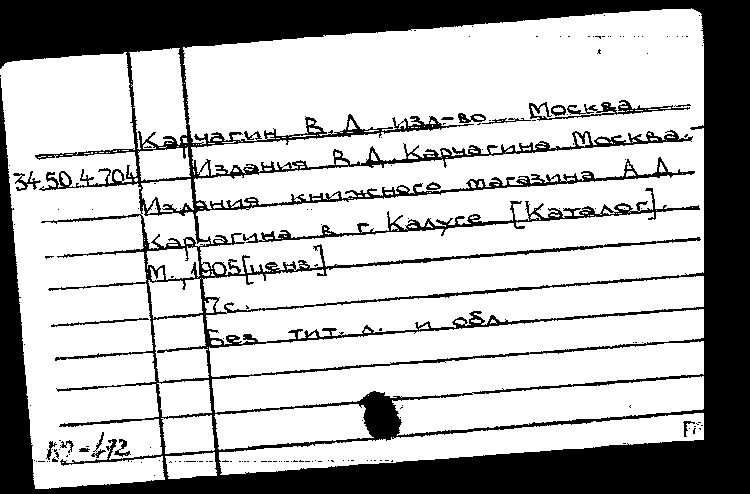 Карчагин, В. Д., изд-во. Москва.
34.50.4.704 Издания В. Д. Карчагина. Москва.-
Издания книжного магазина А. Д.
Карчагина в г. Калусе [Каталог].
М., 1905 [ценз.].
7 с.
Без тит. л. и обл.